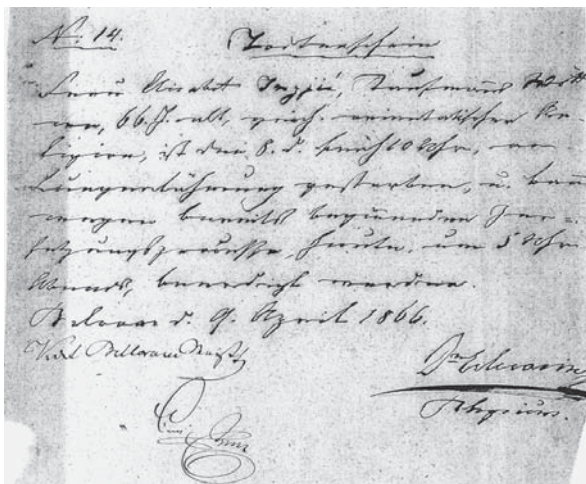 No. 14. Todtenschein
Frau Elisabet Terzić, Kaufmanns Witt
we, 66 J. alt, griech. orientalischer Re
ligion, ist den 8. d. früh 10 Uhr, an
Lungenlähmung gestorben, u. kann
wegen bereits beginnenden Zer=
setzungsprocesse, heute, um 5 Uhr
Abends, beerdigt werden.
d. 9. April 1866.
Vidi
Physicus.